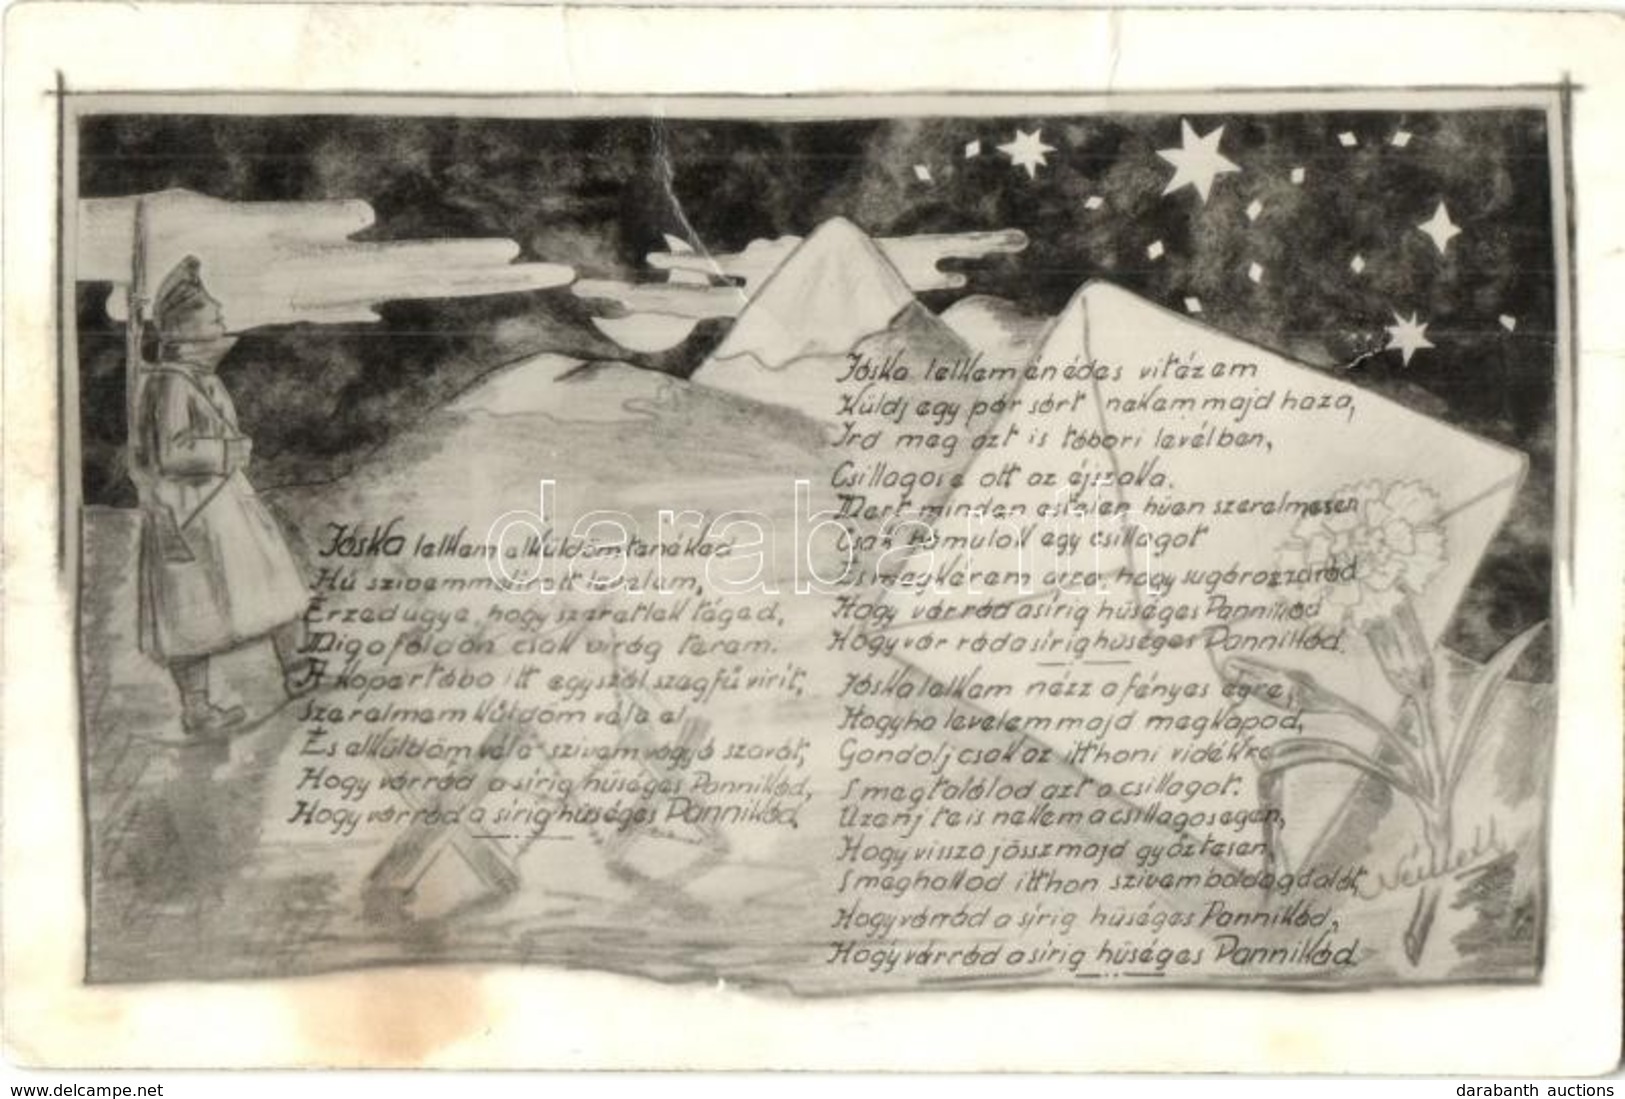 Jóska lelkem elküldöm tenéked
Hű szivemmel irott levelem,
Érzed ugye, hogy szeretlek téged,
Mig a földön csak virág terem.
A kopertába itt egy szál szegfű virít,
Szerelmem küldöm véle el
És elküldöm véle szivem vágyó szavát,
Hogy vár rád a sírig hűséges Pannikád,
Hogy vár rád a sírig hűséges Pannikád.
Jóska lelkem én édes vitézem
Küldj egy pár sort nekem majd haza,
Ird meg azt is tábori levélben,
Csillagos e ott az éjszaka.
Mert minden estelen hűen szerelmesen
Csak bámulok egy csillagot
És megkérem arra, hogy sugározza rád
Hogy vár rád a sírig hűséges Pannikád
Hogy vár rád a sírig hűséges Pannikád.
Jóska lelkem nézz a fényes égre,
Hogyha levelem majd megkapod,
Gondolj csak az itthoni vidékre
S megtalálod azt a csillagot.
Üzenj te is nekem a csillagos egen,
Hogy vissza jössz majd győztesen
S meghallod itthon szivem boldog dalát,
Hogy vár rád a sírig hűséges Pannikád,
Hogy vár rád a sírig hűséges Pannikád.
Németh
darabanth
www.delcampe.net
darabanth auctions